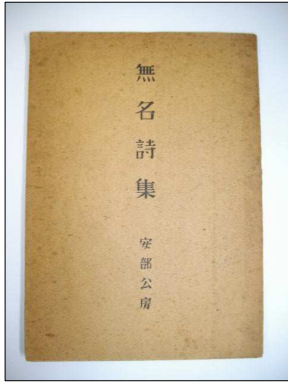 無名詩集
安部公房